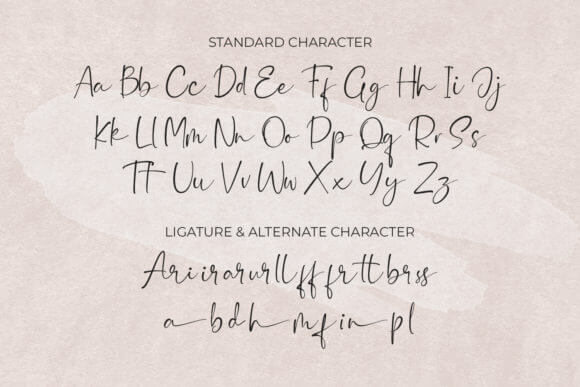 STANDARD CHARACTER
Aa Bb Cc Dd Ee Ff Gg Hh Ii Jj
Kk Ll Mm Nn Oo Pp Qq Rr Ss
Tt Uu Vv Ww Xx Yy Zz
LIGATURE & ALTERNATE CHARACTER
a b d h m f i n p l